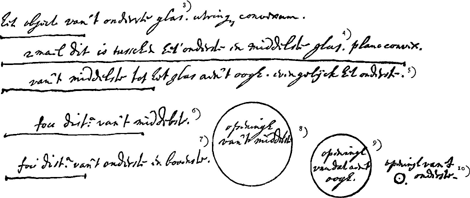 het object van't onderste glas. utring, convexum. 3)
2 mael dit is tusschen het onderste en middelste glas. 4) plano convex.
van't middelste tot het glas aen't oogh. evengelijck het onderste. 5)
foci dist.ᵃ van't middelste. 6)
foci dist.ᵃ van't onderste en bovenste. 7)
openingh van't middelste 8)
openingh van dat aen't oogh. 9)
openingh van't onderste. 10)